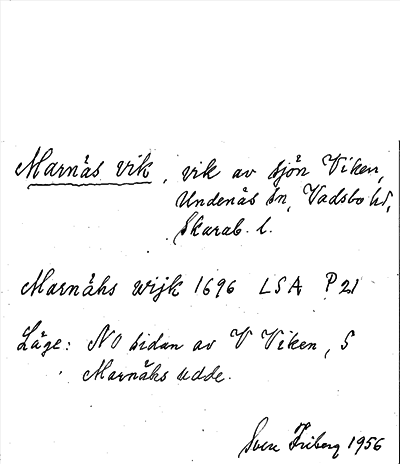 Marnäs vik, vik av sjön Viken,
Undenäs sn, Vadsbo hd,
Skarab. l.
Marnähs wijk 1696 LSA P 21
Läge: NO sidan av V Viken, S
Marnähs udde.
Sven Friberg 1956